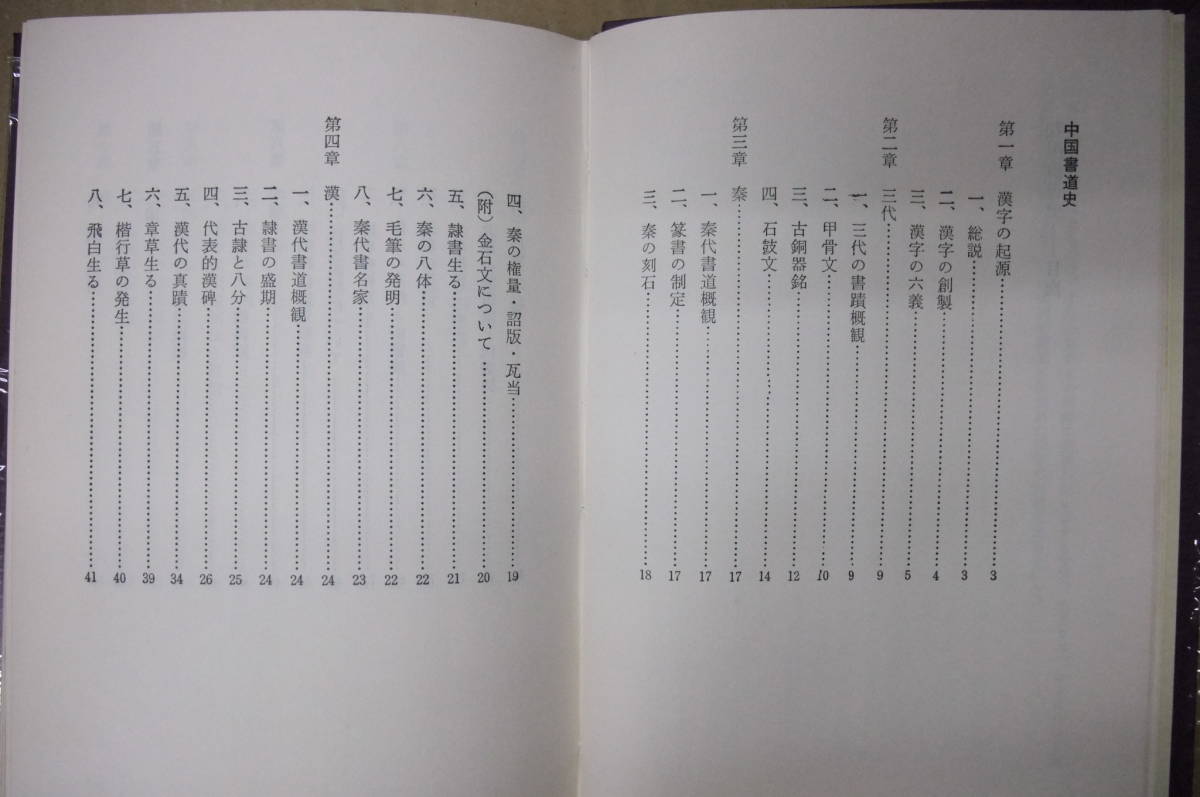 中国書道史
第一章 漢字の起源……3
一、総説……3
二、漢字の創製……4
三、漢字の六義……5
第二章 三代……9
一、三代の書蹟概観……9
二、甲骨文……10
三、古銅器銘……12
四、石鼓文……14
第三章 秦……17
一、秦代書道概観……17
二、篆書の制定……17
三、秦の刻石……18
四、秦の権量・詔版・瓦当……19
(附)金石文について……20
五、隷書生る……21
六、秦の八体……22
七、毛筆の発明……22
八、秦代書名家……23
第四章 漢……24
一、漢代書道概観……24
二、隷書の盛期……24
三、古隷と八分……25
四、代表的漢碑……26
五、漢代の真蹟……34
六、章草生る……39
七、楷行草の発生……40
八、飛白生る……41